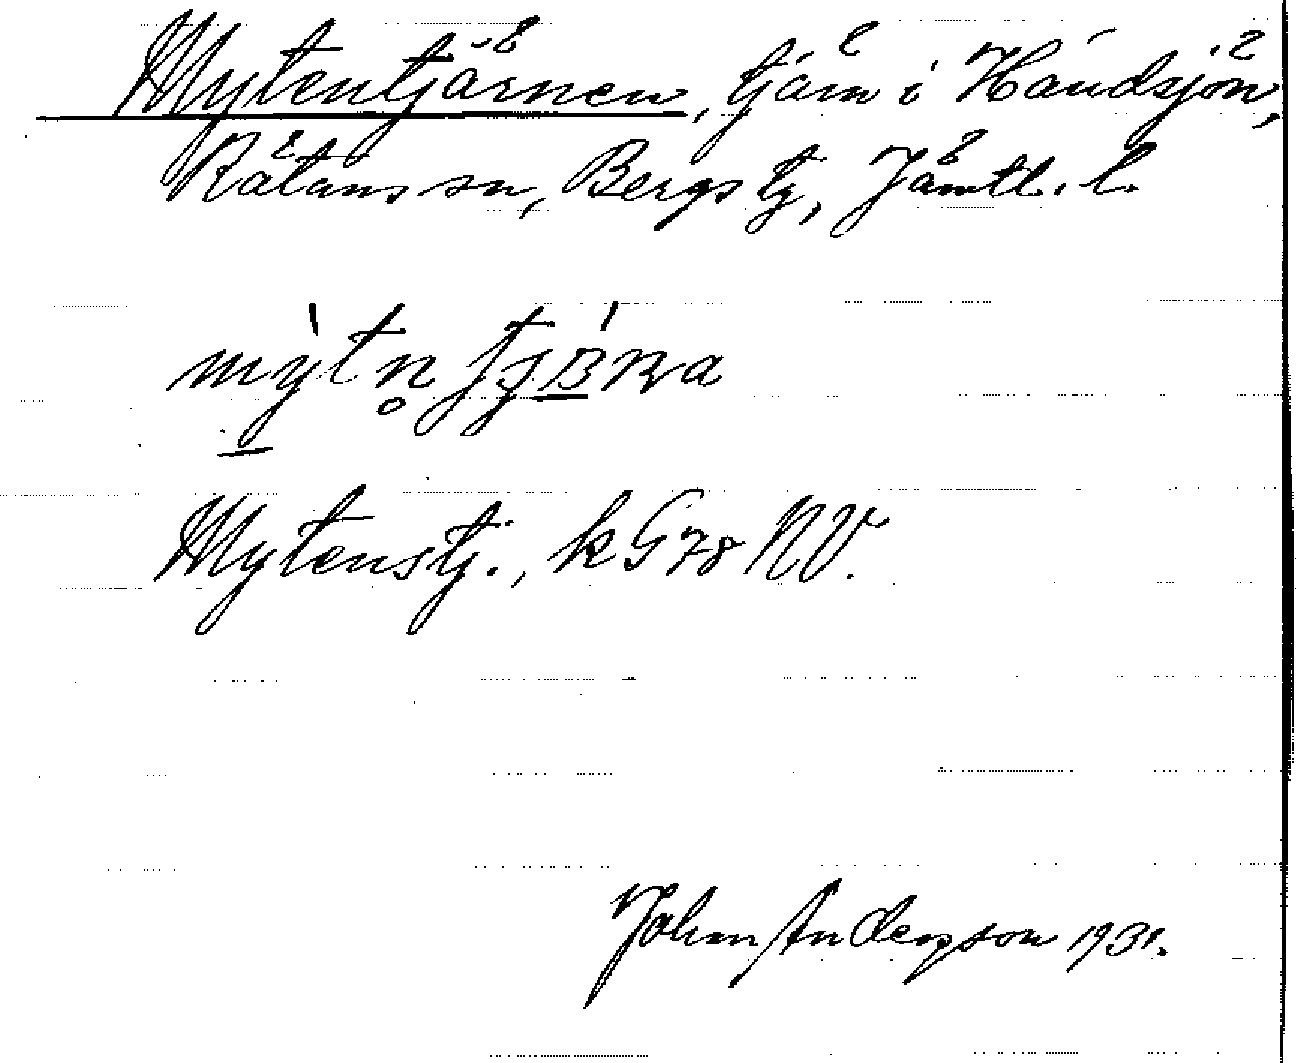 Mytentjärnen, tjärn i Handsjön,
Rätans sn, Bergs tg, Jämtl. l.
Mytenstj., k G 78 NV.
John Anderson 1931.